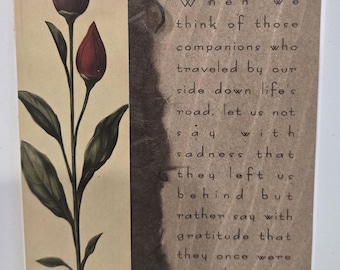 When we
think of those
companions who
traveled by our
side down life's
road, let us not
say with
sadness that
they left us
behind but
rather say with
gratitude that
they once were